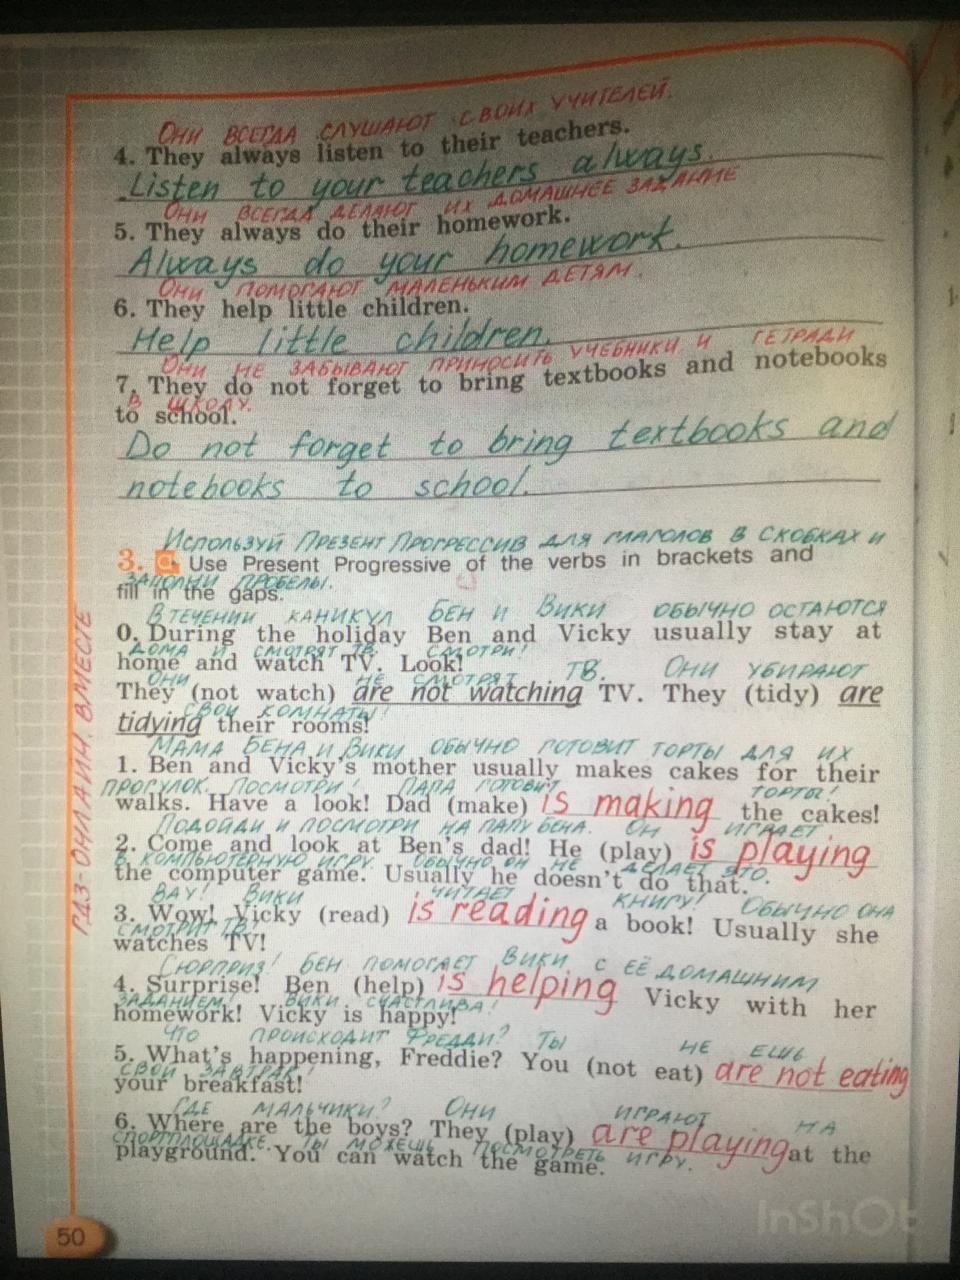 Они всегда слушают своих учителей.
4. They always listen to their teachers.
Listen to your teachers always.
Они всегда делают их домашнее задание
5. They always do their homework.
Always do your homework.
Они помогают маленьким детям.
6. They help little children.
Help little children.
Они не забывают приносить учебники и тетради
7. They do not forget to bring textbooks and notebooks
в школу.
to school.
Do not forget to bring textbooks and
notebooks to school.
Используй Презент Прогрессив для глаголов в скобках и
3. Use Present Progressive of the verbs in brackets and
заполни пробелы.
fill in the gaps.
В течении каникул Бен и Вики обычно остаются
0. During the holiday Ben and Vicky usually stay at
дома и смотрят ТВ. Смотри!
home and watch TV. Look!
Они не смотрят ТВ. Они убирают
They (not watch) are not watching TV. They (tidy) are
свои комнаты!
tidying their rooms!
Мама Бена и Вики обычно готовит торты для их
1. Ben and Vicky's mother usually makes cakes for their
прогулок. Посмотри! Папа готовит торты!
walks. Have a look! Dad (make) is making the cakes!
Подойди и посмотри на папу Бена. Он играет
2. Come and look at Ben's dad! He (play) is playing
в компьютерную игру. Обычно он не делает это.
the computer game. Usually he doesn't do that.
Вау! Вики читает книгу! Обычно она
3. Wow! Vicky (read) is reading a book! Usually she
смотрит ТВ!
watches TV!
Сюрприз! Бен помогает Вики с её домашним
4. Surprise! Ben (help) is helping Vicky with her
заданием! Вики счастлива!
homework! Vicky is happy!
Что происходит Фредди? Ты не ешь
5. What's happening, Freddie? You (not eat) are not eating
свой завтрак!
your breakfast!
Где мальчики? Они играют на
6. Where are the boys? They (play) are playing at the
спортплощадке. Ты можешь посмотреть игру.
playground. You can watch the game.
ГДЗ-ОНЛАЙН. ВМЕСТЕ
50
InShOt